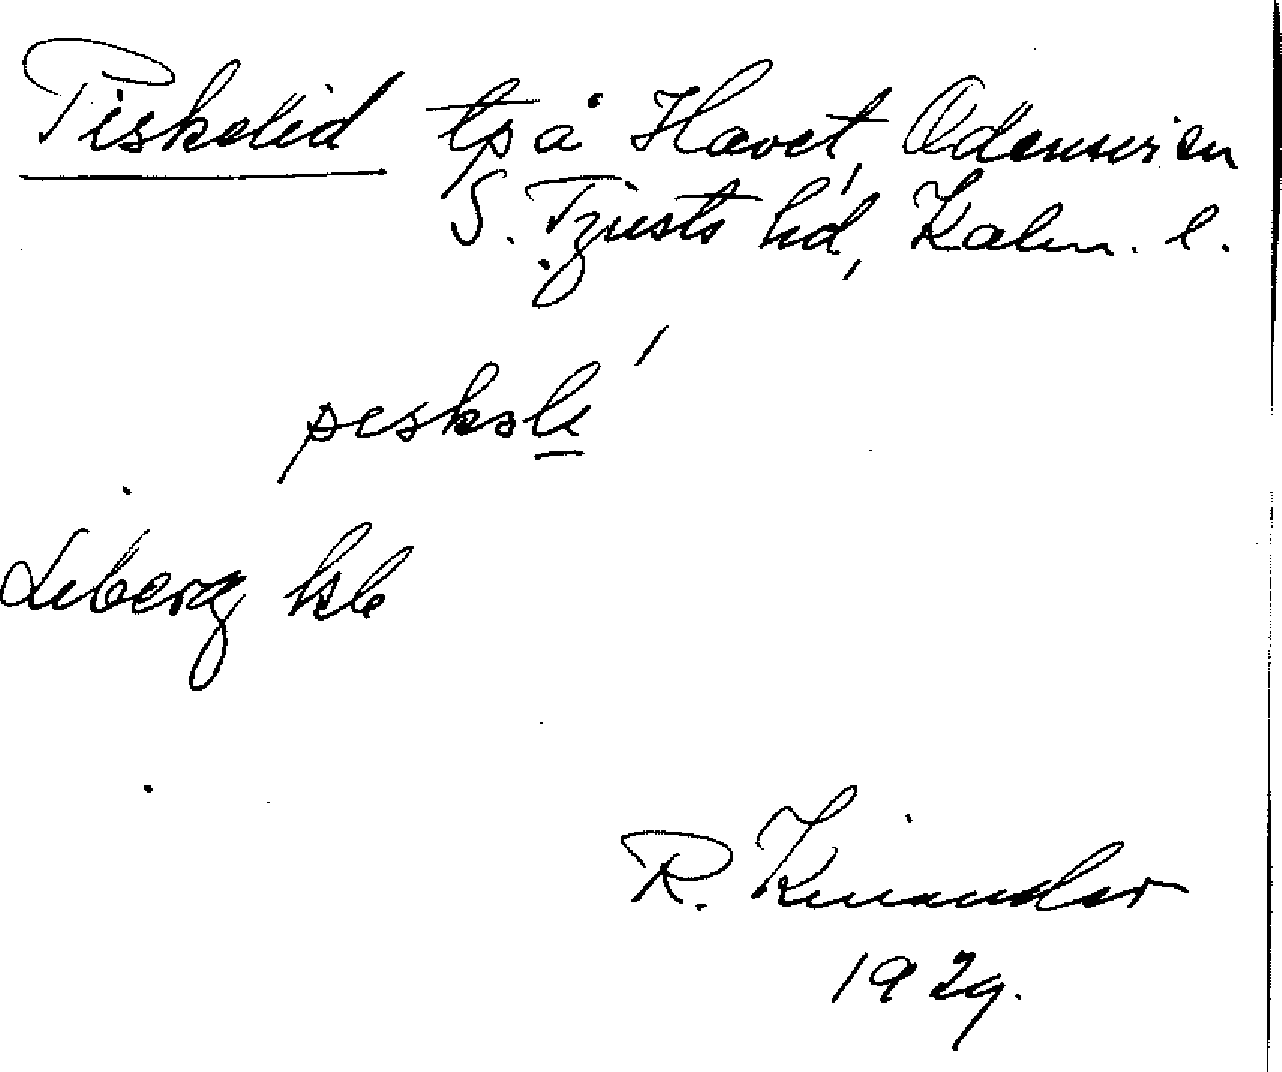 Piskelid tp å Havet, Odensvi sn
S. Tjusts hd, Kalm. l.
peskəli ́
Liberg kle
R. Kinander
1929.